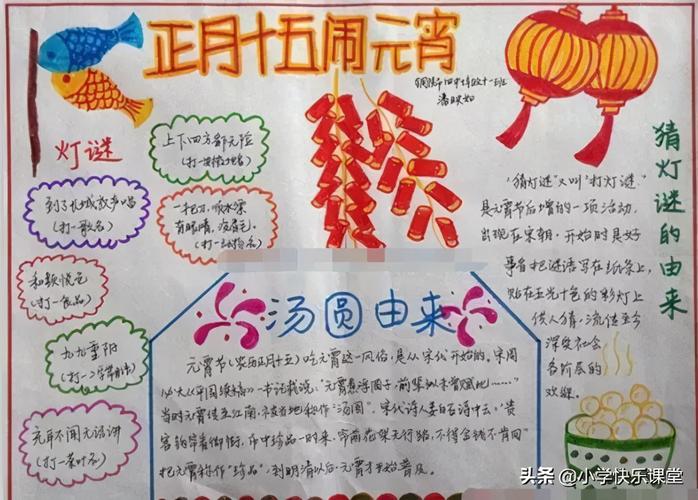 正月十五闹元宵
灯谜
上下四方都无险
到了长城放声唱
(打一歌名)
一把刀,顺水漂
有眼睛,没眉毛
和颜悦色
(打一食品)
九九重阳
充耳不闻无话讲
(打一茶叶名)
猜灯谜的由来
"猜灯谜"又叫"打灯谜"
是元宵节后增的一项活动,
出现在宋朝,开始时是好
事者把谜语写在纸条上,
贴在五光十色的彩灯上
供人猜,流传至今
深受社会
各阶层的
欢缘.
汤圆由来
元宵节(农历正月十五)吃元宵这一风俗,是从宋代开始的,宋周
一书记载说:"元宵煮浮圆子,前辈似未曾赋此……"
当时元宵传至江南
"汤圆".宋代诗人姜白石诗中云:"贵
客钩帘看御街,市中珍品一时来,帘前花架无行路,不得金钱不肯回"
把元宵称作"珍品",到明清以后,元宵才开始普及.
头条 @小学快乐课堂